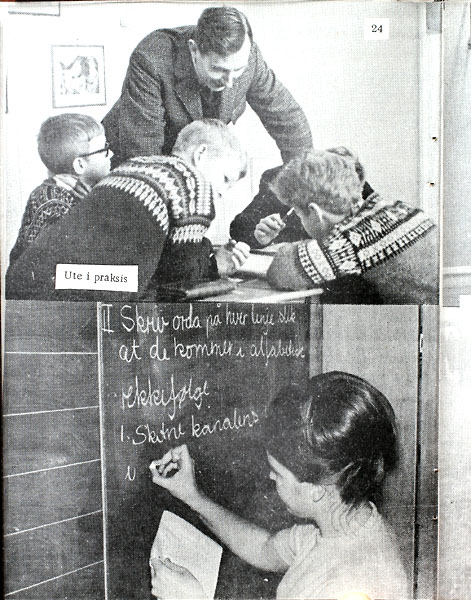 24
Ute i praksis
II Skriv orda på hver linje slik
at de kommer i alfabetisk
rekkefølge
1. Skitne kanalens